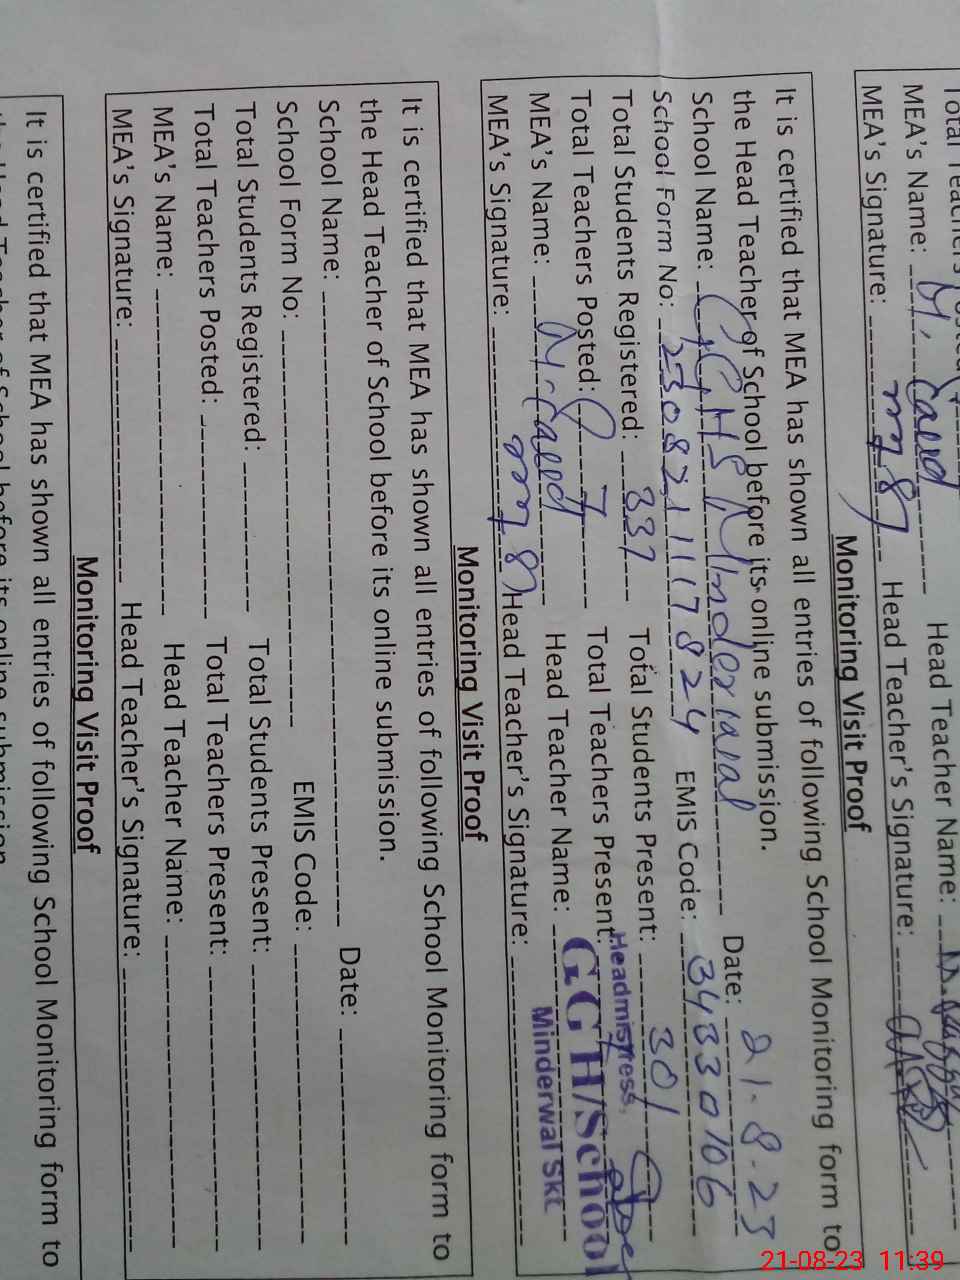 MEA's Name: M. Saeed Head Teacher Name:
MEA's Signature: Head Teacher's Signature:
Monitoring Visit Proof
It is certified that MEA has shown all entries of following School Monitoring form to
the Head Teacher of School before its online submission.
School Name: GGHS Minderwal Date: 21.8.23
School Form No: EMIS Code: 34330106
Total Students Registered: 337 Total Students Present: 301
Total Teachers Posted: 7 Total Teachers Present:
Headmistress,
MEA's Name: M. Saeed Head Teacher Name: GGH/School
MEA's Signature: Head Teacher's Signature: Minderwal SKt
Monitoring Visit Proof
It is certified that MEA has shown all entries of following School Monitoring form to
the Head Teacher of School before its online submission.
School Name: Date:
School Form No: EMIS Code:
Total Students Registered: Total Students Present:
Total Teachers Posted: Total Teachers Present:
MEA's Name: Head Teacher Name:
MEA's Signature: Head Teacher's Signature:
Monitoring Visit Proof
It is certified that MEA has shown all entries of following School Monitoring form to
21-08-23 11:39